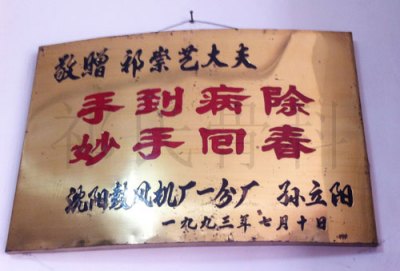 敬赠 祁崇艺大夫
手到病除
妙手回春
沈阳鼓风机厂一分厂 孙立阳
一九九三年七月十日